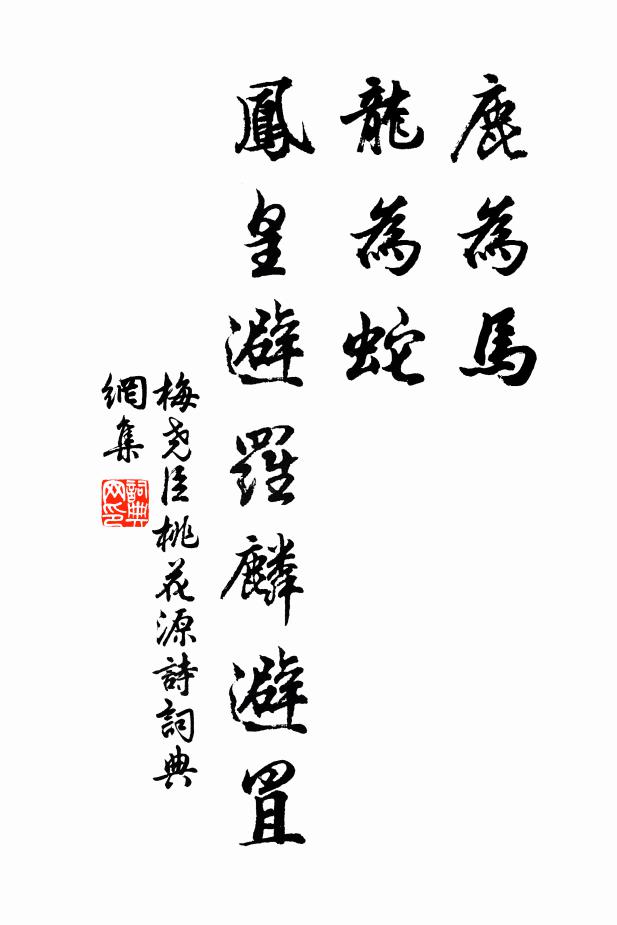 鹿為馬
龍為蛇
鳳皇避羅麟避罝
梅尧臣桃花源詩詞典
網集
詞典
网印